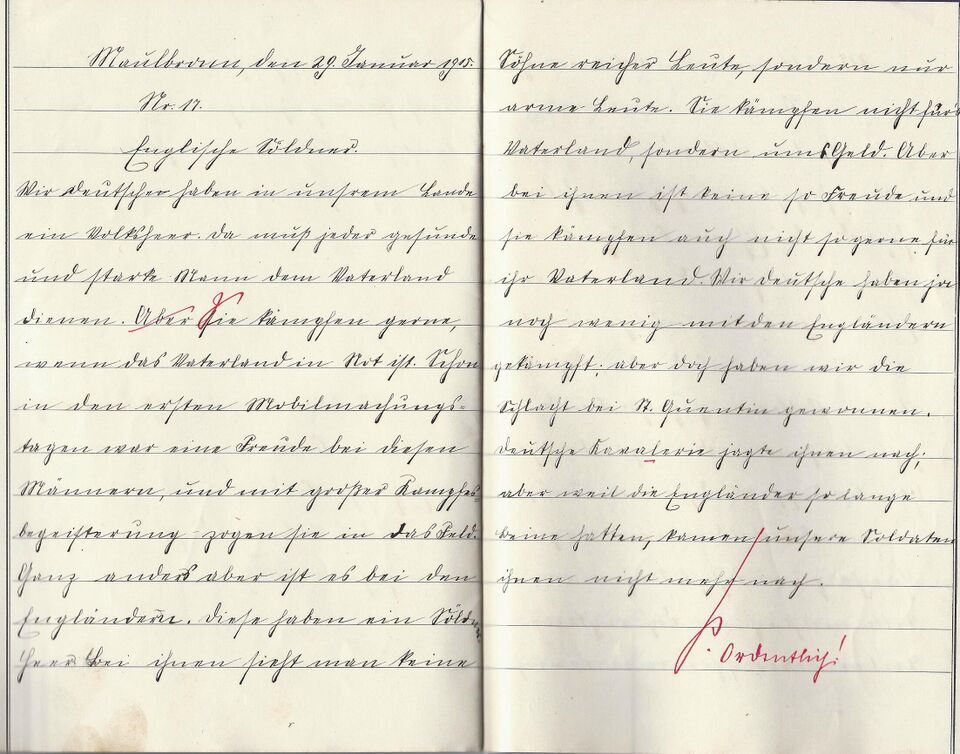 Maulbronn, den 29. Januar 1915.
Nr. 17.
Englische Söldner.
Wir Deutschen haben in unsrem Lande
ein Volksheer. Da muß jeder gesunde
und starke Mann dem Vaterland
dienen. Aber Sie kämpfen gerne,
wenn das Vaterland in Not ist. Schon
in den ersten Mobilmachungs-
tagen war eine Freude bei diesen
Männern, und mit großer Kampfes-
begeisterung zogen sie in das Feld.
Ganz anders aber ist es bei den
Engländern. Diese haben ein Söldner
heer. Bei ihnen sieht man keine
Söhne reicher Leute, sondern nur
arme Leute. Sie kämpfen nicht für's
Vaterland, sondern ums Geld. Aber
bei ihnen ist keine so Freude und
sie kämpfen auch nicht so gerne für
ihr Vaterland. Wir Deutsche haben ja
noch wenig mit den Engländern
gekämpft; aber doch haben wir die
Schlacht bei St. Quentin gewonnen.
Deutsche Kavalerie jagte ihnen nach;
aber weil die Engländer so lange
Beine hatten, kamen unsere Soldaten
ihnen nicht mehr nach.
Ordentlich!